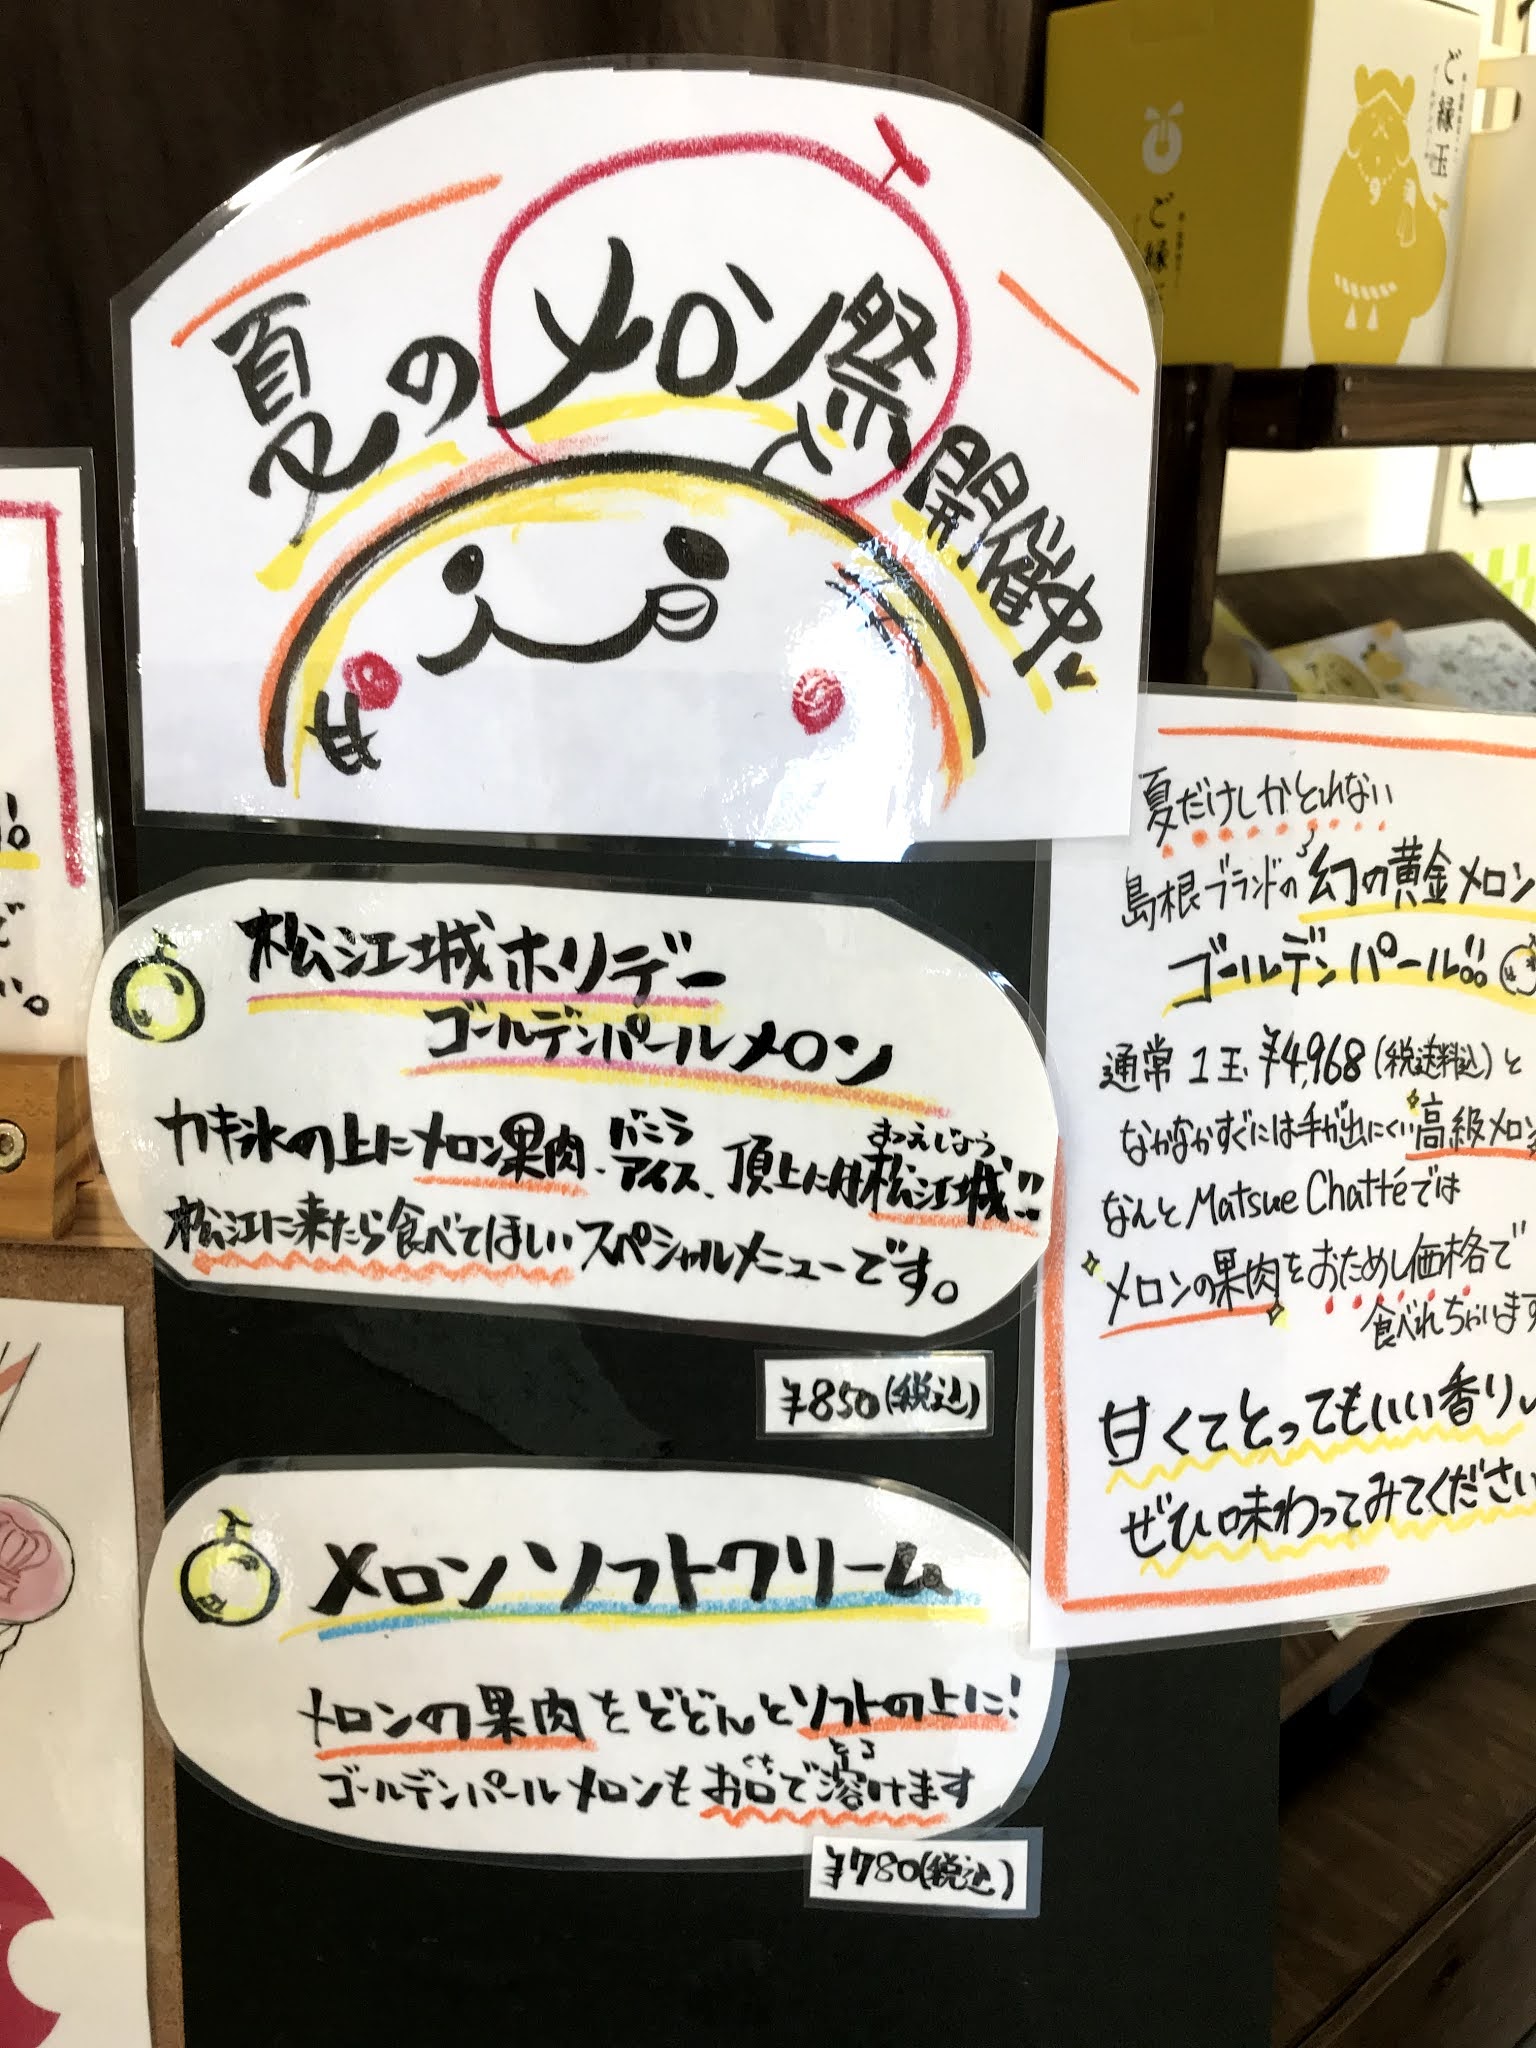 夏のメロン祭
開催中
甘
松江城ホリデー
ゴールデンパールメロン
カキ氷の上にメロン果肉、バニラアイス、頂上には松江城!!
まつえじょう
松江に来たら食べてほしいスペシャルメニューです。
¥850(税込)
メロンソフトクリーム
メロンの果肉をどどんとソフトの上に!
ゴールデンパールメロンもお口で溶けます
くち
とろ
¥780(税込)
夏だけしかとれない
島根ブランドの幻の黄金メロン
ゴールデンパール!!
通常1玉¥4,968(税送料込)と
なかなかすぐには手が出にくい高級メロン
なんとMatsue Chattéでは
メロンの果肉をおためし価格で
食べれちゃいます
甘くてとってもいい香り
ぜひ味わってみてください
ご縁玉
ご縁